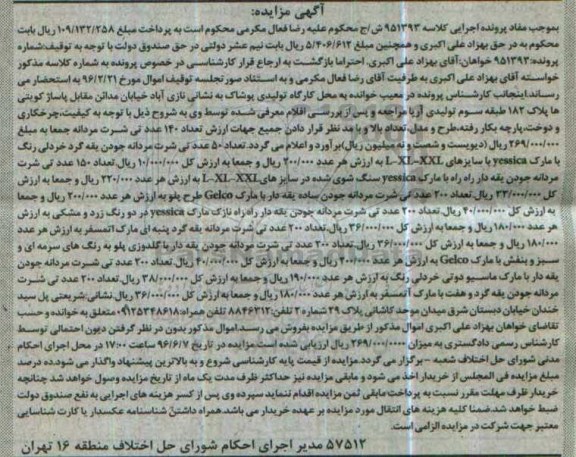 آگهی مزایده:
بموجب مفاد پرونده اجرایی کلاسه ۹۵۱۳۹۳ ش/ج محکوم علیه رضا فعال مکرمی محکوم است به پرداخت مبلغ ۱۰۹/۱۳۲/۲۵۸ ریال بابت
محکوم به در حق بهزاد علی اکبری و همچنین مبلغ ۵/۴۰۶/۶۱۲ ریال بابت نیم عشر دولتی در حق صندوق دولت با توجه به توقیف:شماره
پرونده:۹۵۱۳۹۳ خواهان:آقای بهزاد علی اکبری. احتراما بازگشت به ارجاع قرار کارشناسی در خصوص پرونده به شماره کلاسه مذکور
خواسته آقای بهزاد علی اکبری به طرفیت آقای رضا فعال مکرمی و به استناد صورتجلسه توقیف اموال مورخ ۹۶/۲/۲۱ به استحضار می
رساند:اینجانب کارشناس پرونده در معیب خوانده به محل کارگاه تولیدی پوشاک به نشانی نازی آباد خیابان مدائن مقابل پاساژ کویتی
ها پلاک ۱۸۲ طبقه سوم تولیدی آریا مراجعه و پس از بررسی اقلام معرفی شده توسط وی به شروح ذیل با توجه به کیفیت،چرخکاری
و دوخت،پارچه بکار رفته،طرح و مدل،تعداد بالا و با مد نظر قرار دادن جمیع جهات ارزش تعداد ۱۴۰ عدد تی شرت مردانه جمعا به مبلغ
۲۶۹/۰۰۰/۰۰۰ ریال (دویست و شصت و نه میلیون ریال)برآورد و اعلام می گردد.تعداد ۵۰ عدد تی شرت مردانه جودن یقه گرد خردلی رنگ
با مارک yessica با سایزهای L-XL-XXL به ارزش هر عدد ۲۰۰/۰۰۰ ریال و جمعا به ارزش کل ۱۰/۰۰۰/۰۰۰ ریال.تعداد ۱۵۰ عدد تی شرت
مردانه جودن یقه دار راه راه با مارک yessica سنگ شوی شده در سایزهای L-XL-XXL به ارزش هر عدد ۲۲۰/۰۰۰ ریال و جمعا به ارزش
کل ۳۳/۰۰۰/۰۰۰ ریال.تعداد ۲۰۰ عدد تی شرت مردانه جودن ساده یقه دار با مارک Gelco طرح پلو به ارزش هر عدد ۲۰۰/۰۰۰ ریال و جمعا
به ارزش کل ۴۰/۰۰۰/۰۰۰ ریال.تعداد ۲۰۰ عدد تی شرت مردانه جودن یقه دار راه راه نازک مارک yessica در دو رنگ زرد و مشکی به ارزش
هر عدد ۱۸۰/۰۰۰ ریال و جمعا به ارزش کل ۳۶/۰۰۰/۰۰۰ ریال.تعداد ۲۰۰ عدد تی شرت مردانه یقه گرد پنبه ای مارک اتمسفر به ارزش هر عدد
۱۸۰/۰۰۰ ریال و جمعا به ارزش کل ۳۶/۰۰۰/۰۰۰ ریال.تعداد ۲۰۰ عدد تی شرت مردانه جودن یقه دار با گلدوزی پلو به رنگ های سرمه ای و
سبز و بنفش با مارک Gelco به ارزش هر عدد ۲۰۰/۰۰۰ ریال و جمعا به ارزش کل ۴۰/۰۰۰/۰۰۰ ریال.تعداد ۲۰۰ عدد تی شرت مردانه جودن
یقه دار با مارک ماسیو دوتی خردلی رنگ به ارزش هر عدد ۱۹۰/۰۰۰ ریال و جمعا به ارزش کل ۳۸/۰۰۰/۰۰۰ ریال.تعداد ۲۰۰ عدد تی شرت
مردانه جودن یقه گرد و هفت با مارک آتمسفر به ارزش هر عدد ۱۸۰/۰۰۰ ریال و جمعا به ارزش کل ۳۶/۰۰۰/۰۰۰ ریال.نشانی:شریعتی پل سید
خندان خیابان دبستان شرق میدان موحد کاشانی پلاک ۲۹ شماره ۲ تلفن:۸۸۴۶۲۱۲ تلفن همراه:۰۹۱۲۵۳۴۸۶۱۸متعلق به خوانده و حسب
تقاضای خواهان بهزاد علی اکبری اموال مذکور از طریق مزایده بفروش می رسد.اموال مذکور بدون در نظر گرفتن دیون احتمالی توسط
کارشناس رسمی دادگستری به میزان ۲۶۹/۰۰۰/۰۰۰ ریال ارزیابی شده است.مزایده در تاریخ ۹۶/۶/۷ ساعت ۱۷:۰۰ در محل اجرای احکام
مدنی شورای حل اختلاف شعبه - برگزار می گردد.مزایده از قیمت پایه کارشناسی شروع و به بالاترین پیشنهاد واگذار می شود.ده درصد
مبلغ مزایده فی المجلس از خریدار اخذ می شود و مابقی مزایده نیز حداکثر ظرف مدت یک ماه از تاریخ مزایده وصول خواهد شد چنانچه
خریدار ظرف مهلت مقرر نسبت به پرداخت مابقی ثمن مزایده اقدام ننماید سپرده وی پس از کسر هزینه های اجرایی به نفع صندوق دولت
ضبط خواهد شد.ضمنا کلیه هزینه های انتقال مورد مزایده بر عهده خریدار می باشد.همراه داشتن شناسنامه عکسدار یا کارت شناسایی
معتبر جهت شرکت در مزایده الزامی است.
۵۷۵۱۲ مدیر اجرای احکام شورای حل اختلاف منطقه ۱۶ تهران